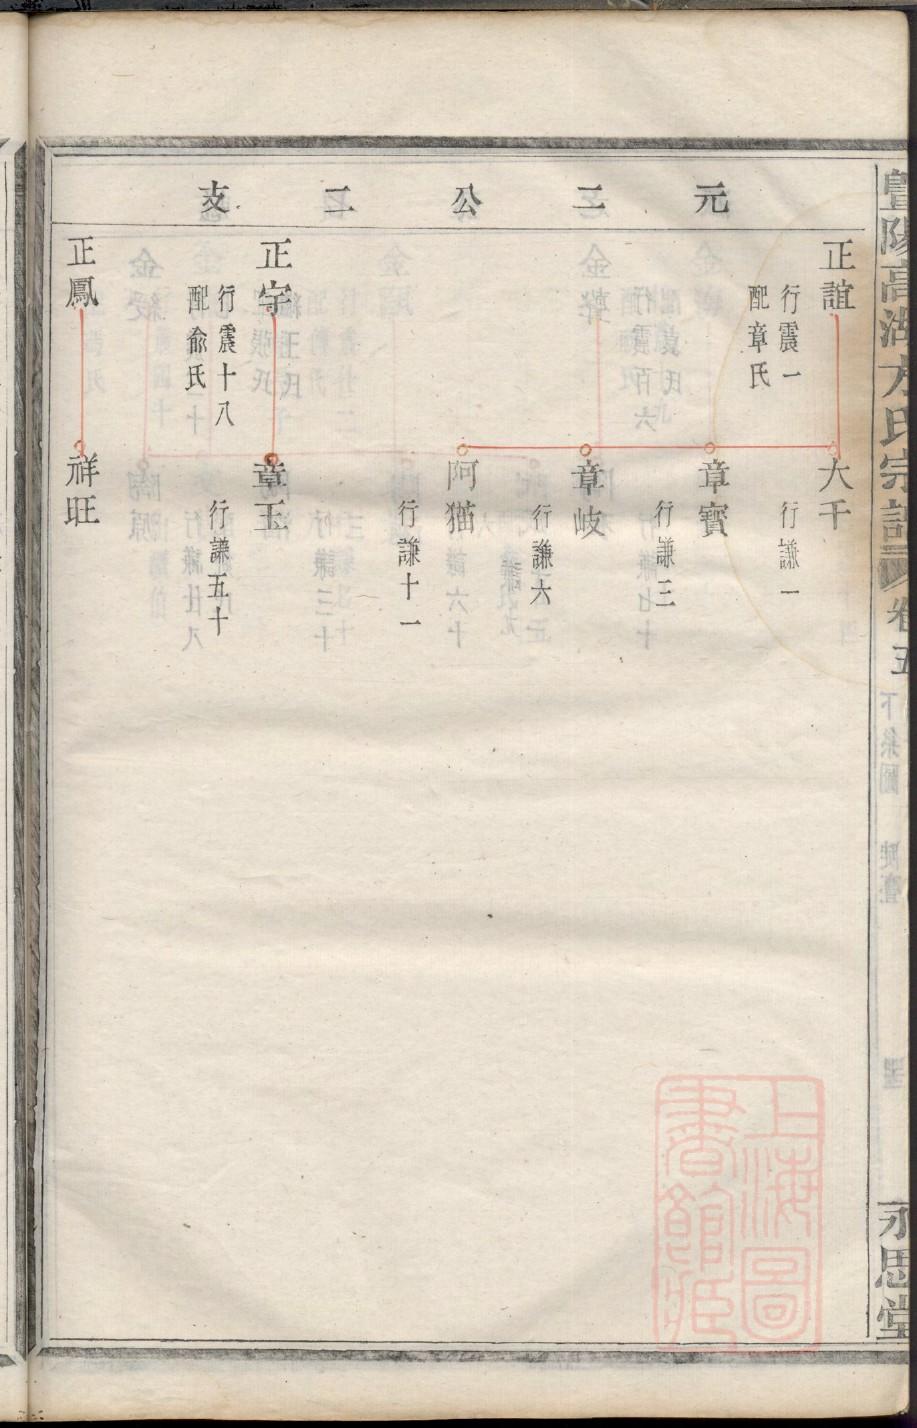 暨陽高湖方氏宗譜
卷五
下系圖
永思堂
元二公二支
正誼
行震一
配章氏
正字
行震十八
配俞氏
正鳳
大千
行謙一
章寶
行謙三
章岐
行謙六
阿猫
行謙十一
章玉
行謙五十
祥旺
上海圖
書館藏